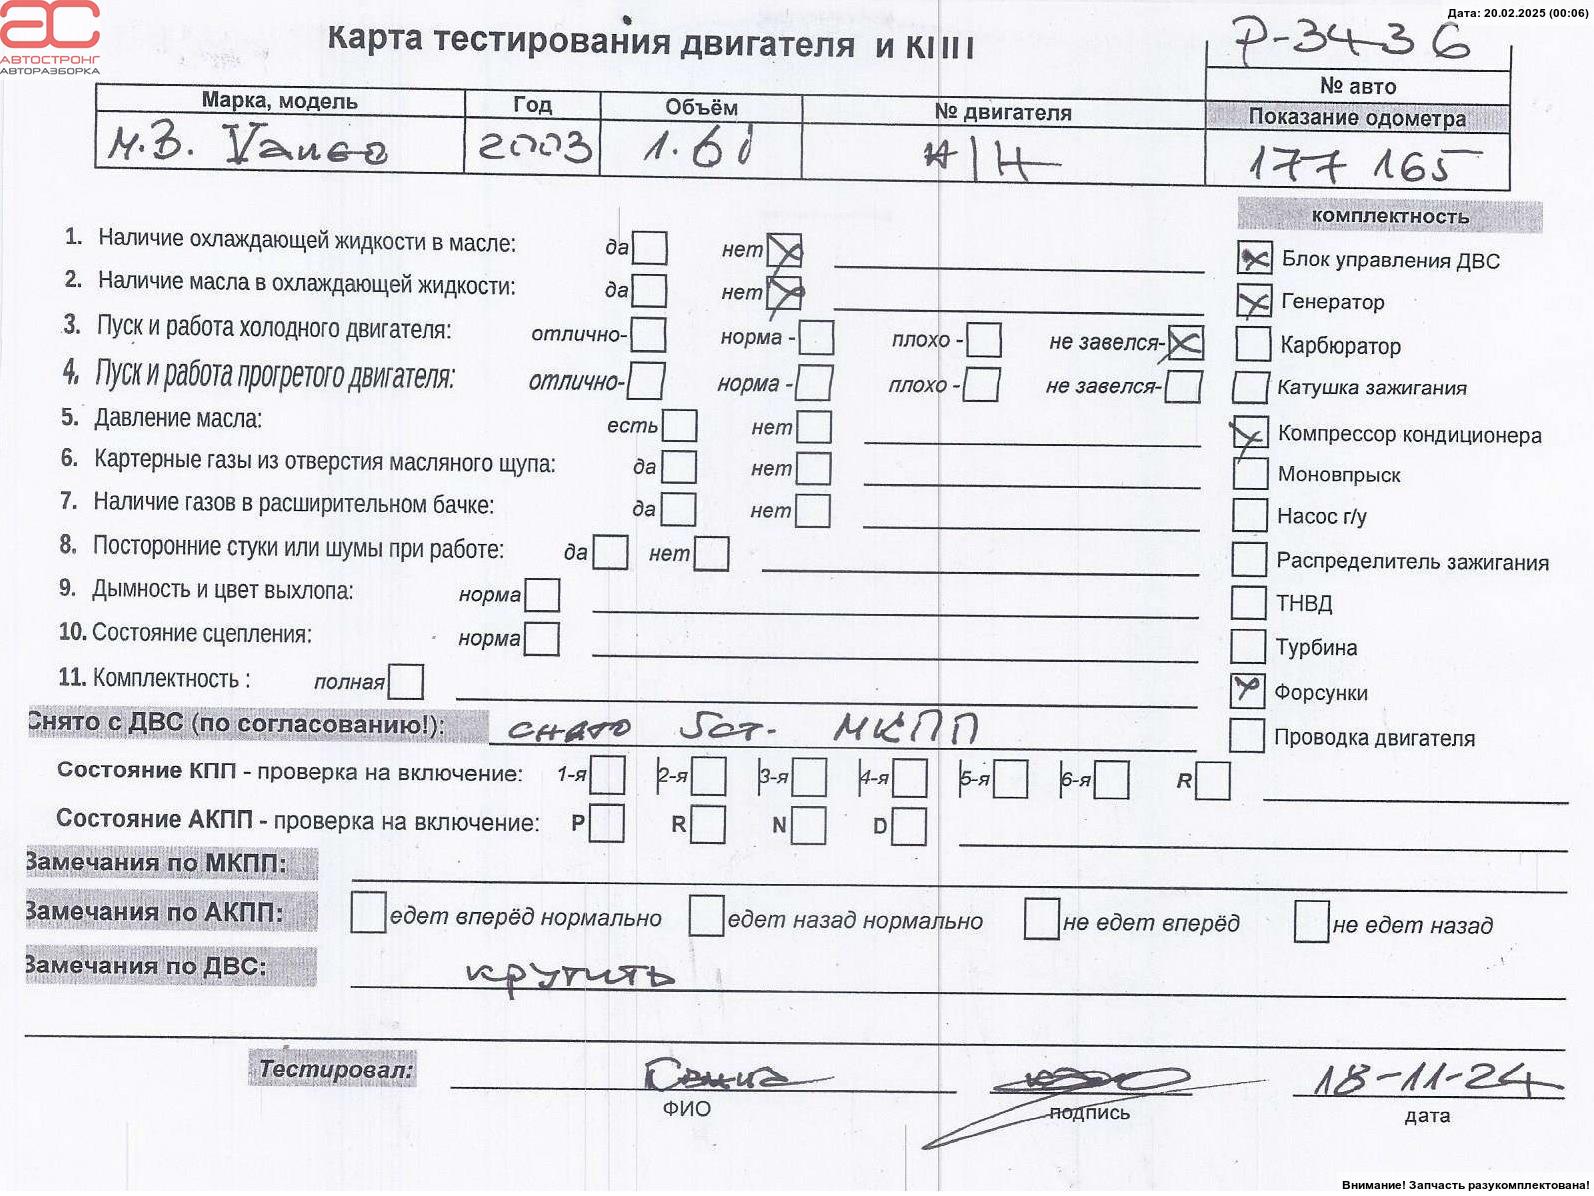 Дата: 20.02.2025 (00:06)
АС
АВТОСТРОНГ
АВТОРАЗБОРКА
Карта тестирования двигателя и КПП
P-3436
№ авто
Марка, модель Год Объём № двигателя Показание одометра
М.В. Vaneo 2003 1.6i Н/Н 177 165
комплектность
1. Наличие охлаждающей жидкости в масле: да нет
Блок управления ДВС
2. Наличие масла в охлаждающей жидкости: да нет
Генератор
3. Пуск и работа холодного двигателя: отлично- норма - плохо - не завелся-
Карбюратор
4. Пуск и работа прогретого двигателя: отлично- норма - плохо - не завелся-
Катушка зажигания
5. Давление масла: есть нет
Компрессор кондиционера
6. Картерные газы из отверстия масляного щупа: да нет
Моновпрыск
7. Наличие газов в расширительном бачке: да нет
Насос г/у
8. Посторонние стуки или шумы при работе: да нет
Распределитель зажигания
9. Дымность и цвет выхлопа: норма
ТНВД
10. Состояние сцепления: норма
Турбина
11. Комплектность : полная
Форсунки
Снято с ДВС (по согласованию!): снято 5ст. МКПП
Проводка двигателя
Состояние КПП - проверка на включение: 1-я 2-я 3-я 4-я 5-я 6-я R
Состояние АКПП - проверка на включение: P R N D
Замечания по МКПП:
Замечания по АКПП: едет вперёд нормально едет назад нормально не едет вперёд не едет назад
Замечания по ДВС: крутить
Тестировал: 18-11-24
ФИО подпись дата
Внимание! Запчасть разукомплектована!